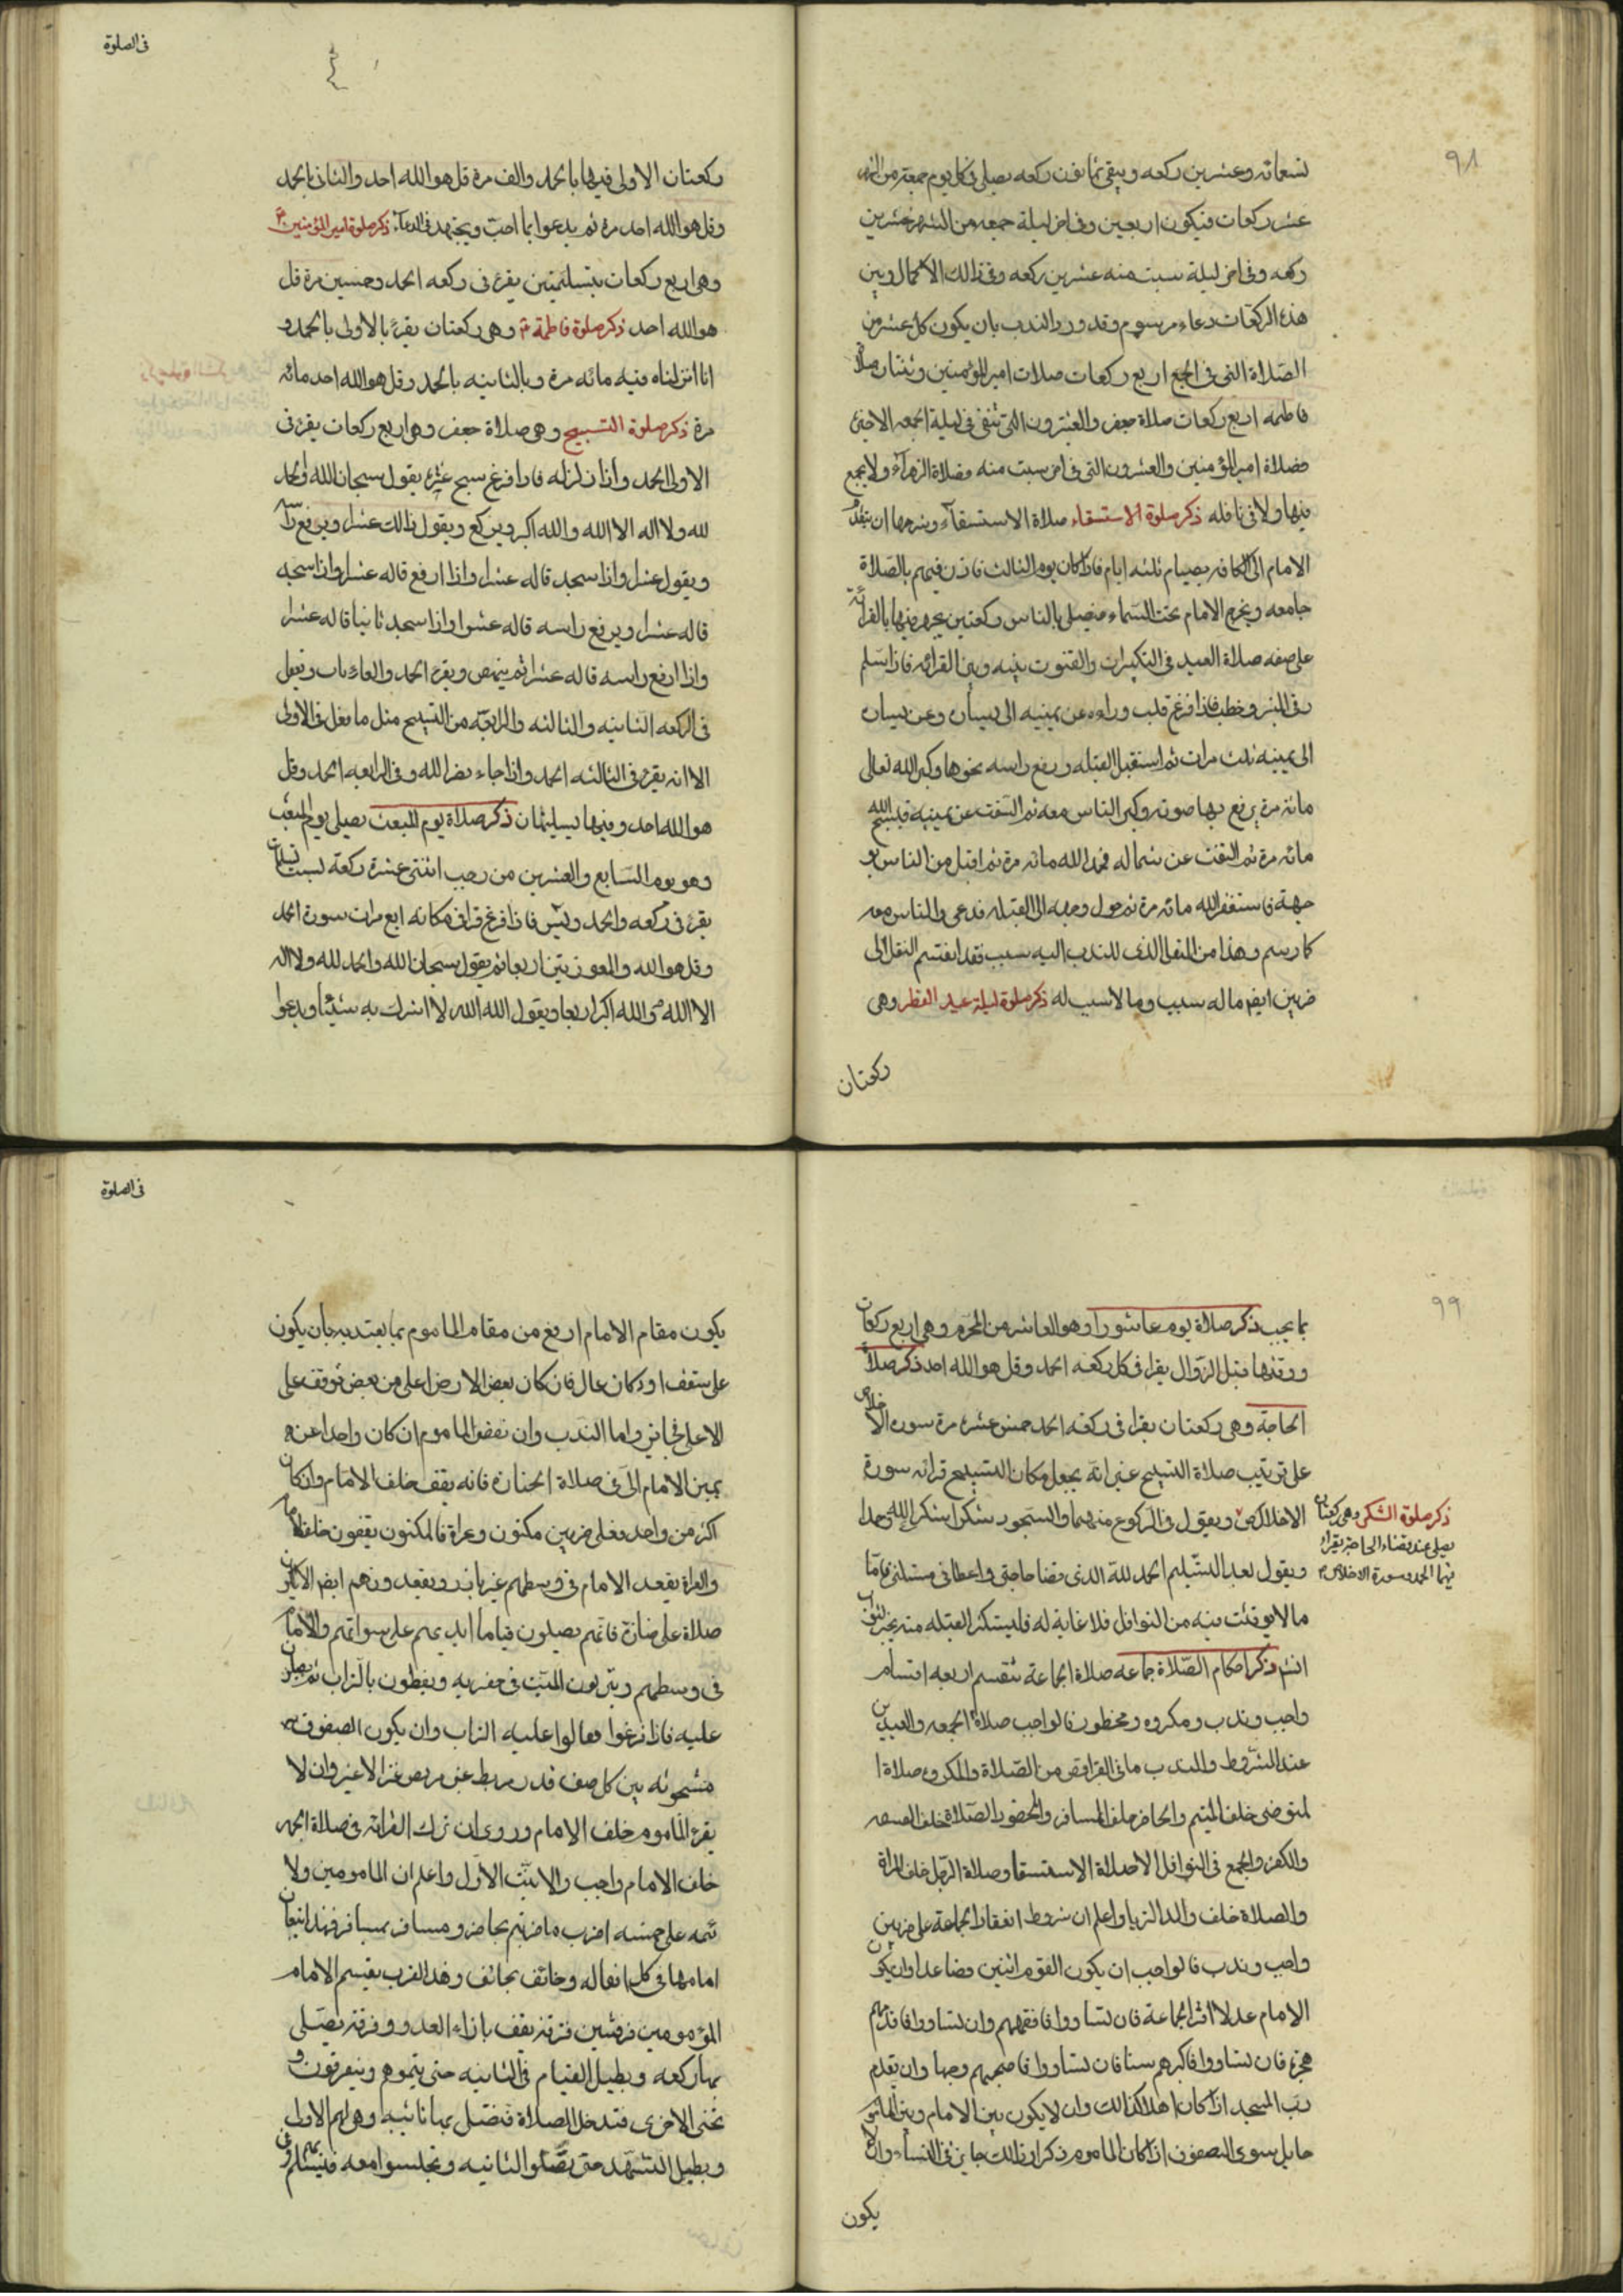 ٩٨
تسعمائه وعشرين ركعه ويبقى ثمانون ركعه يصلى فى كل يوم جمعة من الشهر
عشر ركعات فيكون اربعين وفى اخر ليلة جمعه من الشهر عشرين
ركعه وفى اخر ليلة سبت منه عشرين ركعه وفى ذالك الاكمال وبين
هذه الركعات دعاء مرسوم وقد ورد الندب بان يكون كل عشر من
الصّلاة التى فى الجمع اربع ركعات صلات امير المؤمنين وثنتان صلاة
فاطمه اربع ركعات صلاة جعفر والعشرون التى تبقى فى ليلة الجمعه الاخيرة
فصلاة امير المؤمنين والعشرون التى فى اخر سبت منه فصلاة الزهراء ولا يجمع
فيها ولا فى نافله ذكر صلوة الاستسقاء صلاة الاستسقاء وشرحها ان يتقدم
الامام الى الكافه بصيام ثلثه ايام فاذا كان يوم الثالث فاذن فيهم بالصّلاة
جامعه ويخرج الامام تحت السّماء فيصلى بالناس ركعتين يجهر فيها بالقرائة
على صفه صلاة العيد فى التكبيرات والقنوت بينه وبين القرائه فاذا سلم
رقى المنبر وخطب فاذا فرغ قلب رداءه عن يمينه الى يساره وعن يساره
الى يمينه ثلث مرات ثم استقبل القبله ورفع راسه نحوها وكبر الله تعالى
مائة مرة يرفع بها صوته وكبر الناس معه ثم التفت عن يمينه فيسبح الله
مائه مرة ثم التفت عن شماله فحمد الله مائه مرة ثم اقبل من الناس بو
جهة فاستغفر الله مائه مرة ثم حول وجهه الى القبله فدعى والناس معه
كما رسم وهذا من النفل الذى للندب اليه سبب فقد انقسم النفل الى
ضربين ايضا ماله سبب وما لا سبب له ذكر صلوة ليلة عيد الفطر وهى
ركعتان
فى الصلوة
ركعتان الاولى فيها بالحمد والف مرة قل هو الله احد والثانى بالحمد
وقل هو الله احد مرة ثم يدعوا بما احبّ ويجتهد فى الدعاء ذكر صلوة امير المؤمنين ع
وهى اربع ركعات بتسليمتين يقرء فى ركعه الحمد وخمسين مرة قل
هو الله احد ذكر صلوة فاطمة ع وهى ركعتان يقرء بالاولى بالحمد و
انا انزلناه فيه مائه مرة وبالثانيه بالحمد وقل هو الله احد مائه
مرة ذكر صلوة التسبيح وهى صلاة جعفر وهى اربع ركعات يقرء فى
الاولى الحمد واذا زلزله فاذا فرغ سبح عشرة يقول سبحان الله والحمد
لله ولا اله الا الله والله اكبر ويركع ويقول ذالك عشرا ويرفع راسه
ويقول عشرا واذا سجد قاله عشرا واذا ارفع قاله عشرا واذا سجد
قاله عشرا ويرفع راسه قاله عشرا واذا سجد ثانيا قاله عشرا
واذا ارفع راسه قاله عشرا ثم ينهض ويقرء الحمد والعاديات ويفعل
فى الركعه الثانيه والثالثه والرابعّه من التسبيح مثل ما فعل فى الاولى
الا انه يقرء فى الثالثه الحمد واذا جاء نصر الله وفى الرابعه الحمد وقل
هو الله احد وفيها تسليمان ذكر صلاة يوم المبعث يصلى يوم المبعث
وهو يوم السّابع والعشرين من رجب اثنتى عشرة ركعة بست تسليمات
يقرء فى ركعه والحمد ويٰسٓ فاذا فرغ قرا فى مكانه اربع مرات سورة الحمد
وقل هو الله والمعوذتين اربعا ثم يقول سبحان الله والحمد لله ولا اله
الا الله والله اكبر اربعا ويقول الله الله لا اشرك به شيئا ويدعوا
٩٩
بما يجب ذكر صلاة يوم عاشورا وهو العاشر من المحرّم وهى اربع ركعات
ووقتها قبل الزّوال يقراء فى كل ركعه الحمد وقل هو الله احد ذكر صلاة
الحاجة وهى ركعتان يقراء فى ركعه الحمد خمس عشرة مرة سوره الاخلاص
على ترتيب صلاة التسبيح غير انّه يجعل مكان التسبيح قرائه سورة
الاخلاص ويقول فى الركوع منهما والسّجود شكرا شكرا لله وحمدا
ويقول بعد التسّليم الحمد للّه الذى قضا حاجتى واعطانى مسئلتى فامّا
ذكر صلوة الشكر وهى ركعتان
يصلى عند قضاء الحاجة يقراء
فيها الحمد وسورة الاخلاص
ما لا يوقت فيه من النوافل فلا غاية له فليستكثر العبد منه يحرز الثواب
انشء ذكر احكام الصّلاة جماعه صلاة الجماعة تنقسم اربعه اقسام
واجب وندب ومكروه ومحظور فالواجب صلاة الجمعه والعيدين
عند الشّروط والندب ما فى الفرائض من الصّلاة والمكروه صلاة ا
لمتوضى خلف المتيم والحاضر خلف المسافر والمحضور الصّلاة خلف الفسقه
والكفره والجمع فى النوافل الا صلاة الاستسقا وصلاة الرّجل خلف المراة
والصلاة خلف ولد الزنا واعلم ان شروط انعقاد الجماعة على ضربين
واجب وندب فالواجب ان يكون القوم اثنين فصاعدا وان يكون
الامام عدلا اقرا الجماعة فان تساووا فافقههم وان تساووا فاقدمهم
هجرة فان تساووا فاكبرهم سنا فان تساووا فاصبحهم وجها وان يقدم
ربّ المسجد اذا كان اهلا لذالك وان لا يكون بين الامام وبين الماموم
حايل سوى الصفوف اذا كان الماموم ذكرا وذالك جايز فى النساء وان لا
يكون
فى الصلوة
يكون مقام الامام ارفع من مقام الماموم بما يعتد به بان يكون
على سقف او دكان عال فان كان بعض الارض اعلى من بعض فوقف على
الاعلى فجائز واما الندب وان تقف الماموم ان كان واحدا عن
يمين الامام الّا فى صلاة الجنازة فانه يقف خلف الامام وان كان
اكثر من واحد فعلى ضربين مكتون وعراة فالمكتون يقفون خلف الامام
والعراة يقعد الامام فى وسطهم غير بارز ويقعد ورهم ايضا
صلاة على جنازة فانّهم يصلون قياما ايديهم على سواتهم والامام
فى وسطهم ويتربون الميّت فى حفرته ويغطون بالتّراب ثم يصلى
عليه فاذا فرغوا فعالوا عليه التراب وان يكون الصفوف
مشحونه بين كل صف قدر مربط عنز مربض عنز لا غير وان لا
يقرء المأموم خلف الامام وروى ان ترك القرائه فى صلاة الجهر
خلف الامام واجب والاثبت الاوّل واعلم ان المامومين ولا
ئمه على خمسه اضرب حاضر ياتم بحاضر ومسافر بمسافر فهذا يتبعان
امامها فى كل افعاله وخائف بخائف وهذا الضرب يقيسم الامام
المؤمومين فرقتين فرقة يقف بازاء العدو وفرقة يصّلى
بها ركعه ويطيل القيام فى الثانيه حتى يتموهم ويتفرقون و
تجئ الاخرى فتدخل للصلاة فتصّل بها ثانيه وهى لهم الاولى
ويطيل التشهد حتى يصّلو الثانيه ويجلسوا معه فيسّلم بهم